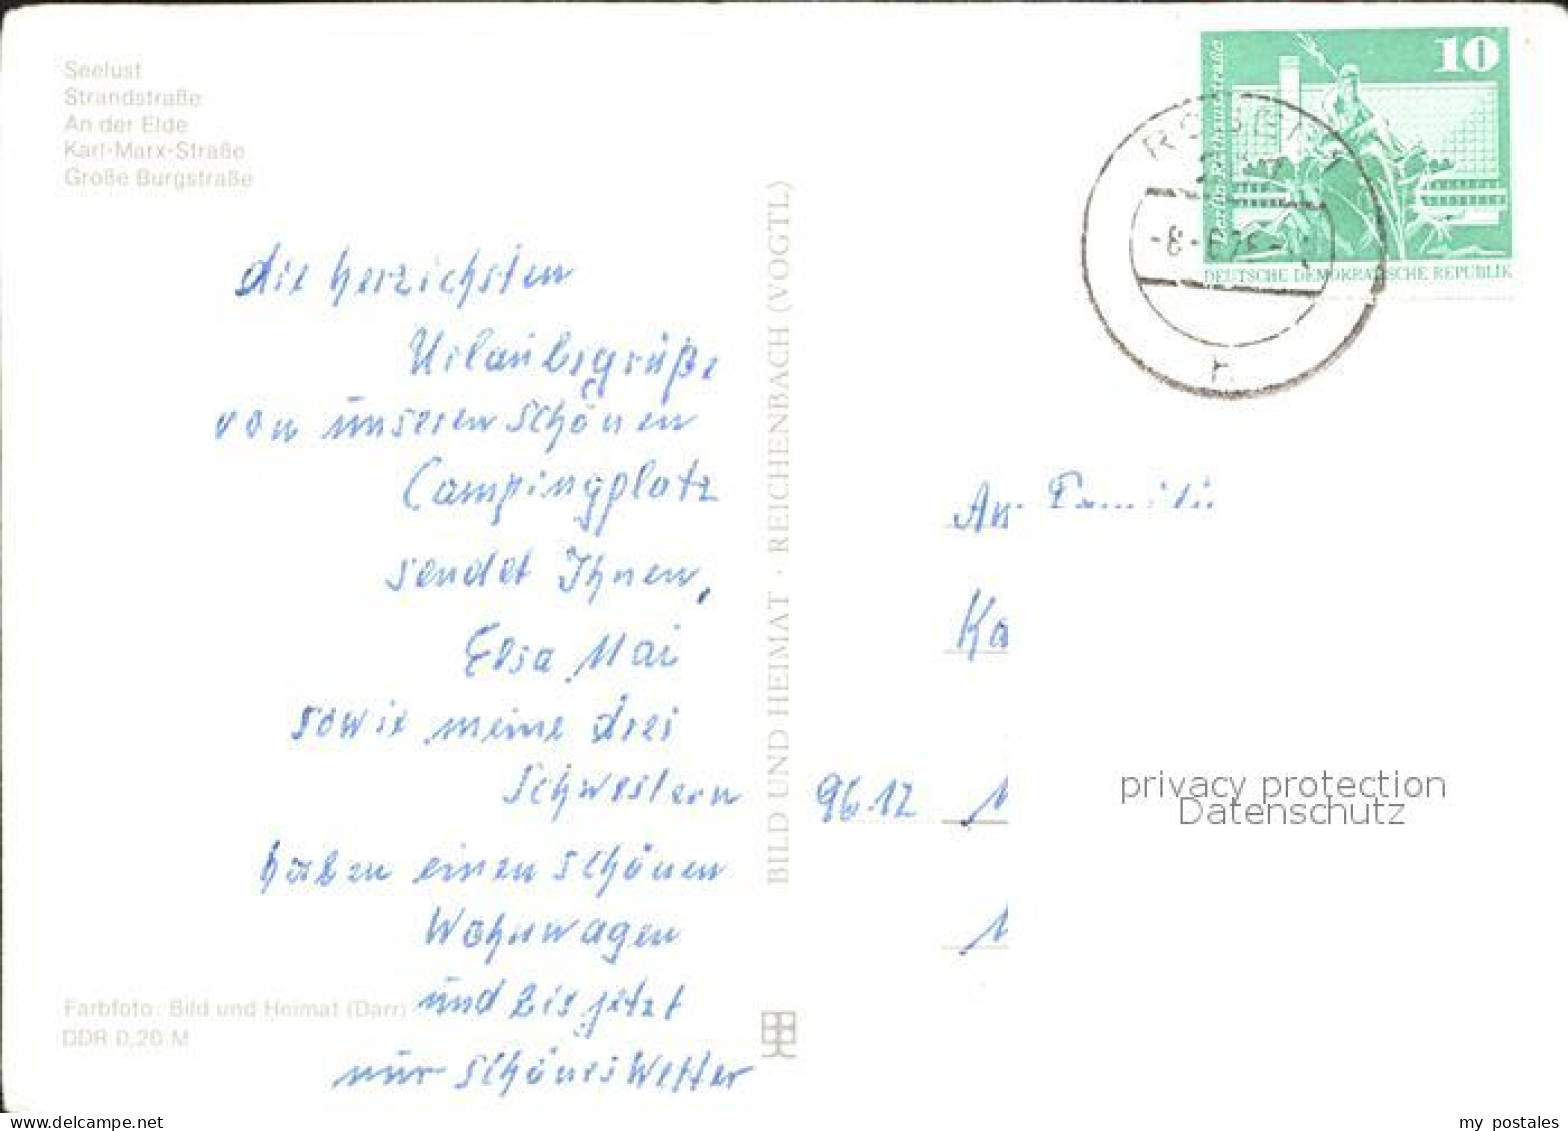 Seelust
Strandstraße
An der Elde
Karl-Marx-Straße
Große Burgstraße
die herzichsten
Urlaubsgrüße
von unseren schönen
Campingplatz
sendet Ihnen,
Elsa Mai
sowie meine drei
Schwestern
haben einen schönen
Wohnwagen
und bis jetzt
nur schönes Wetter
Farbfoto: Bild und Heimat (Darr)
DDR 0,20 M
BILD UND HEIMAT · REICHENBACH (VOGTL)
10
DEUTSCHE DEMOKRATISCHE REPUBLIK
An Familie
Ka
9612
privacy protection
Datenschutz
www.delcampe.net
my_postales